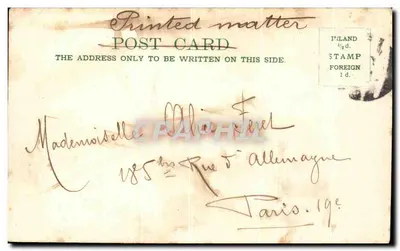 Printed matter
POST CARD
THE ADDRESS ONLY TO BE WRITTEN ON THIS SIDE.
INLAND
½d.
STAMP
FOREIGN
1d.
Mademoiselle Féret
bis Rue d'Allemagne
Paris. 19e